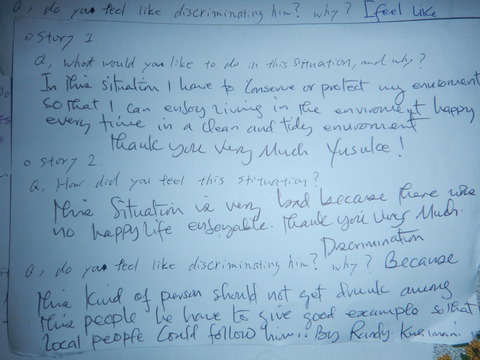 Q, do you feel like discriminating him? why? I feel like
○ Story 1
Q, what would you like to do in this situation, and why?
In this situation I have to conserve or protect my enviroment
so that I can enjoy living in the enviroment happy
every time in a clean and tidy enviroment
Thank you very Much Yusuke!
○ Story 2.
Q, How did you feel this stituation?
This Situation is very bad because there was
no happy life enjoyable. Thank you very Much.
Discrimination
Q, do you feel like discriminating him? why? Because
this kind of person should not get drunk among
this people he have to give good example so that
local people could follow him.. By Randy